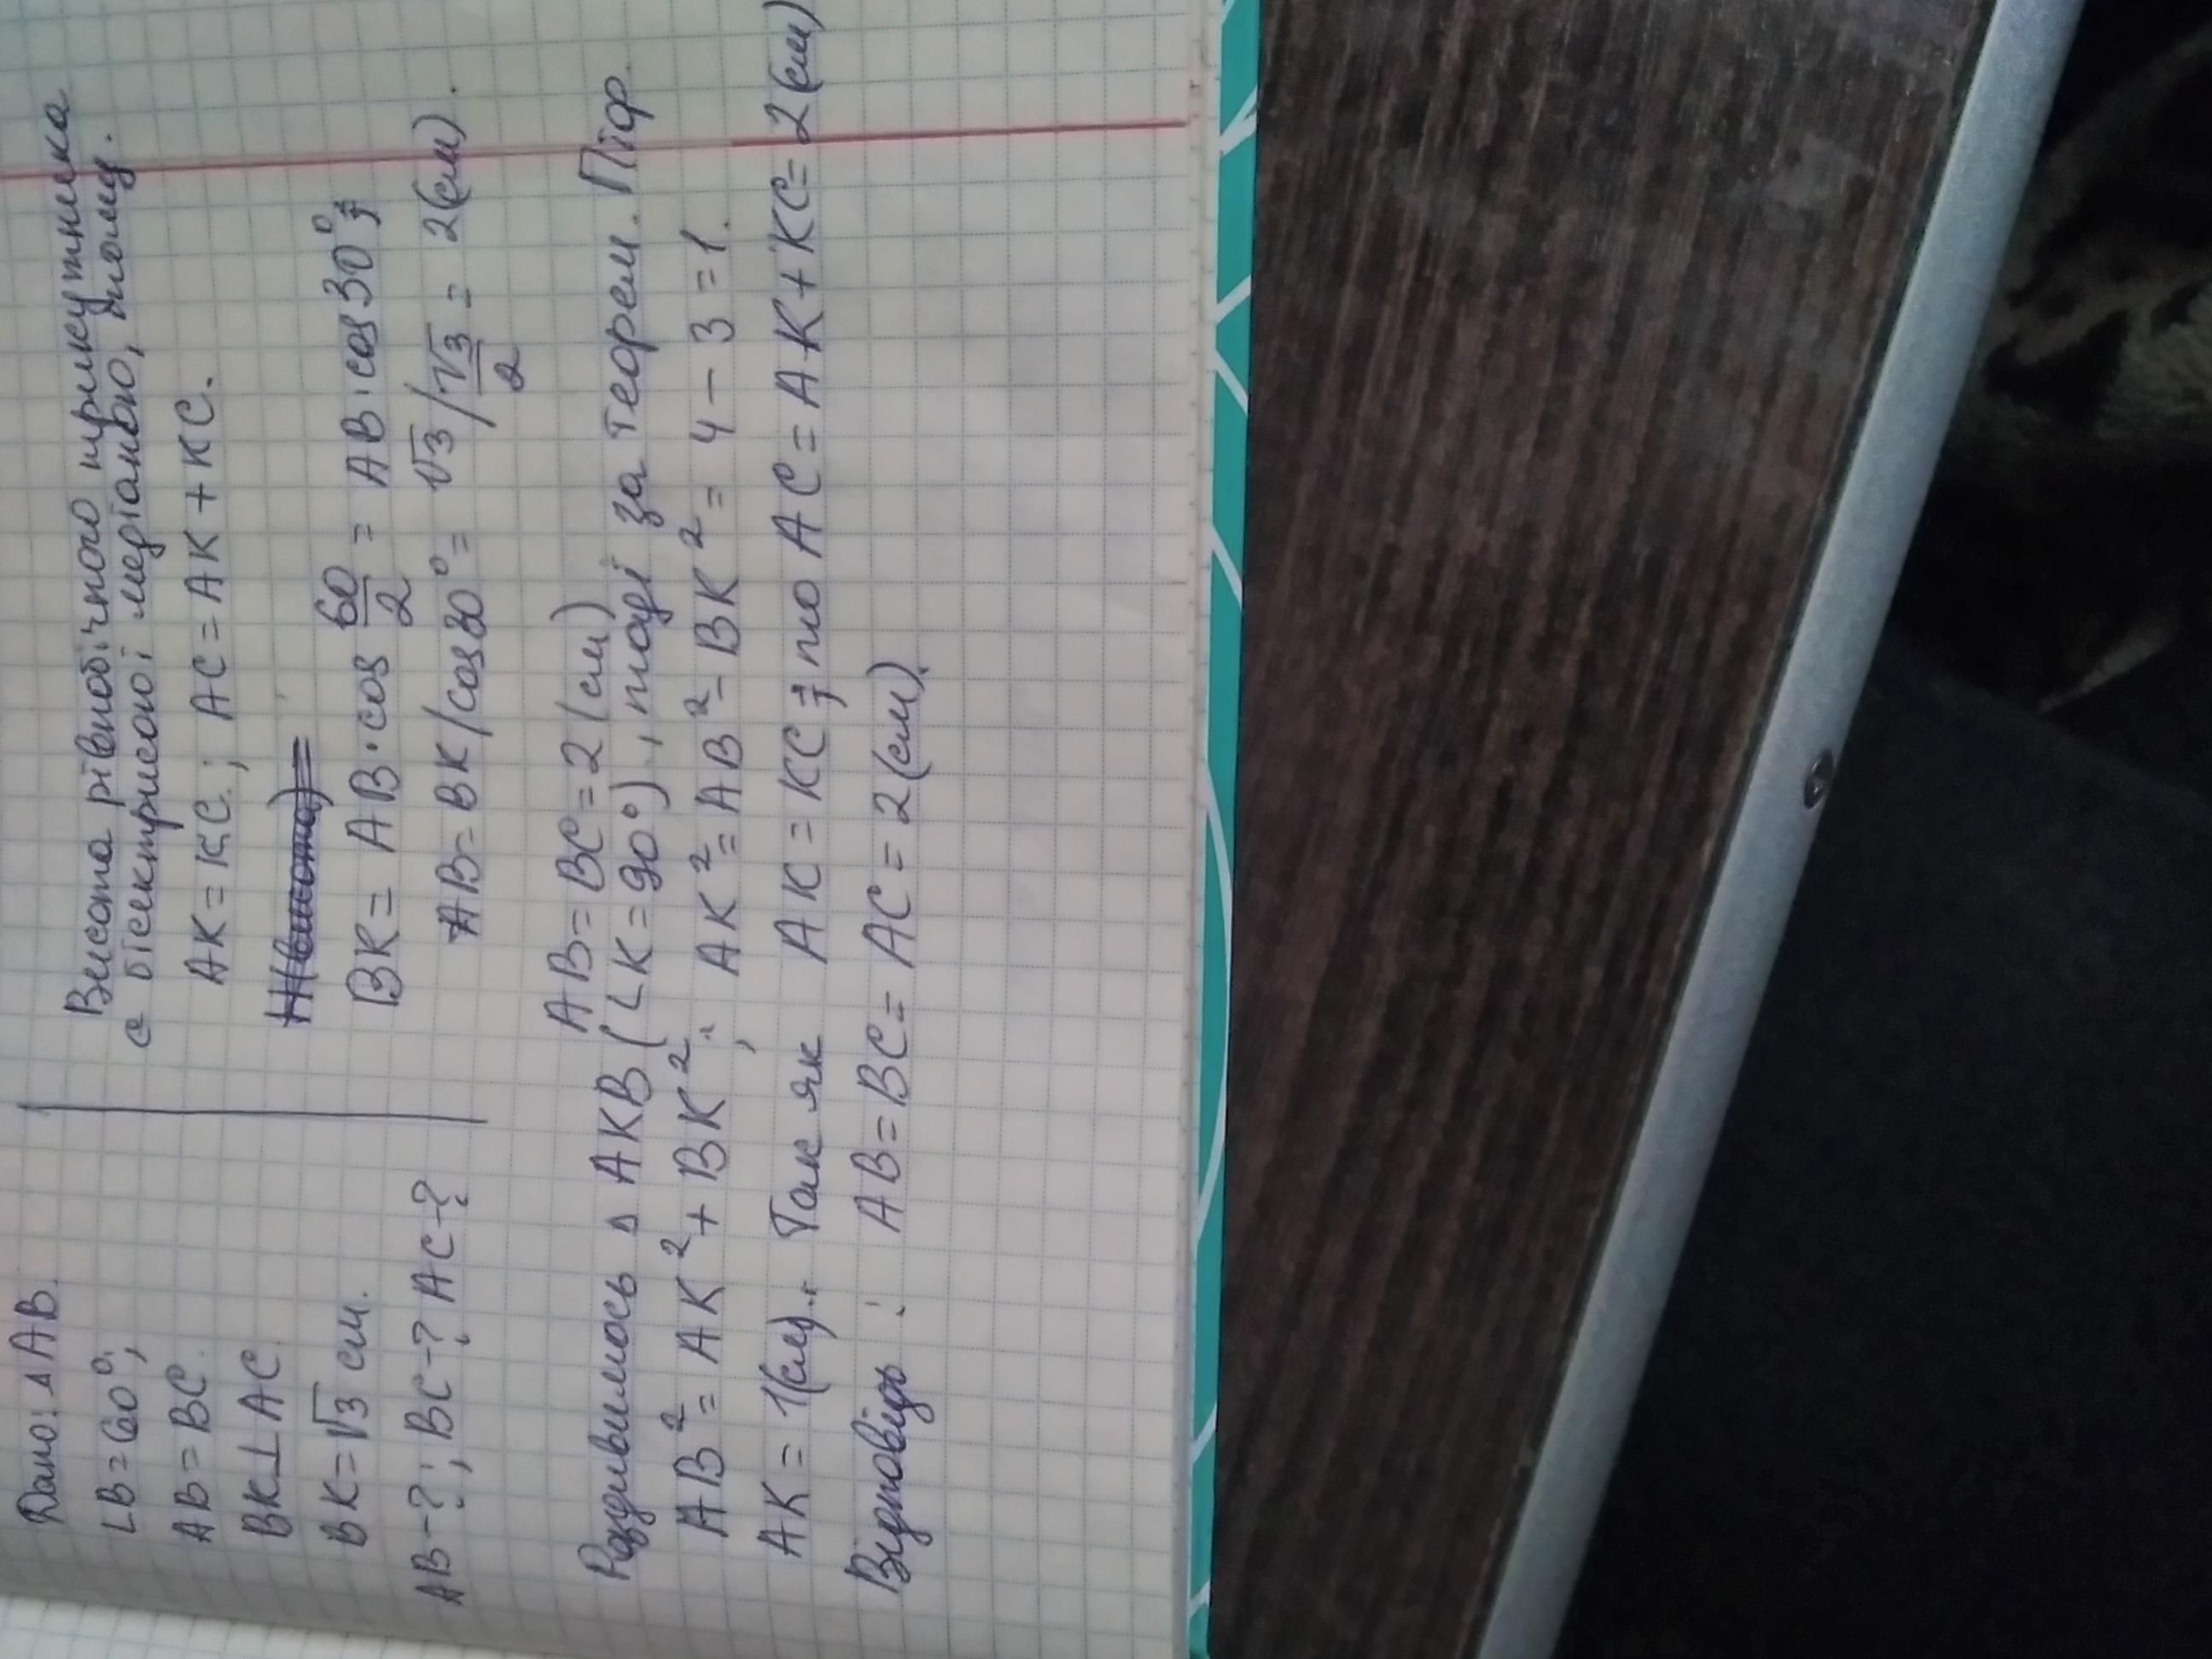 Дано: △ AB.
∟B = 60°;
AB = BC.
BK ⊥ AC.
BK = √3 см.
AB - ?; BC - ? AC - ?
Висота рівнобічного трикутника
є бісектрисою і медіаною, тому.
AK = KC.; AC = AK + KC.
BK = AB · cos 60/2 = AB · cos 30°;
AB = BK / cos 30° = √3 / √3/2 = 2 (см).
AB = BC = 2 (см)
Роздивимось △ AKB (∟K = 90°), тоді за теорем. Піф.
AB² = AK² + BK².; AK² = AB² - BK² = 4 - 3 = 1.
AK = 1 (см). Так як AK = KC, то AC = AK + KC = 2 (см)
Відповідь: AB = BC = AC = 2 (см).